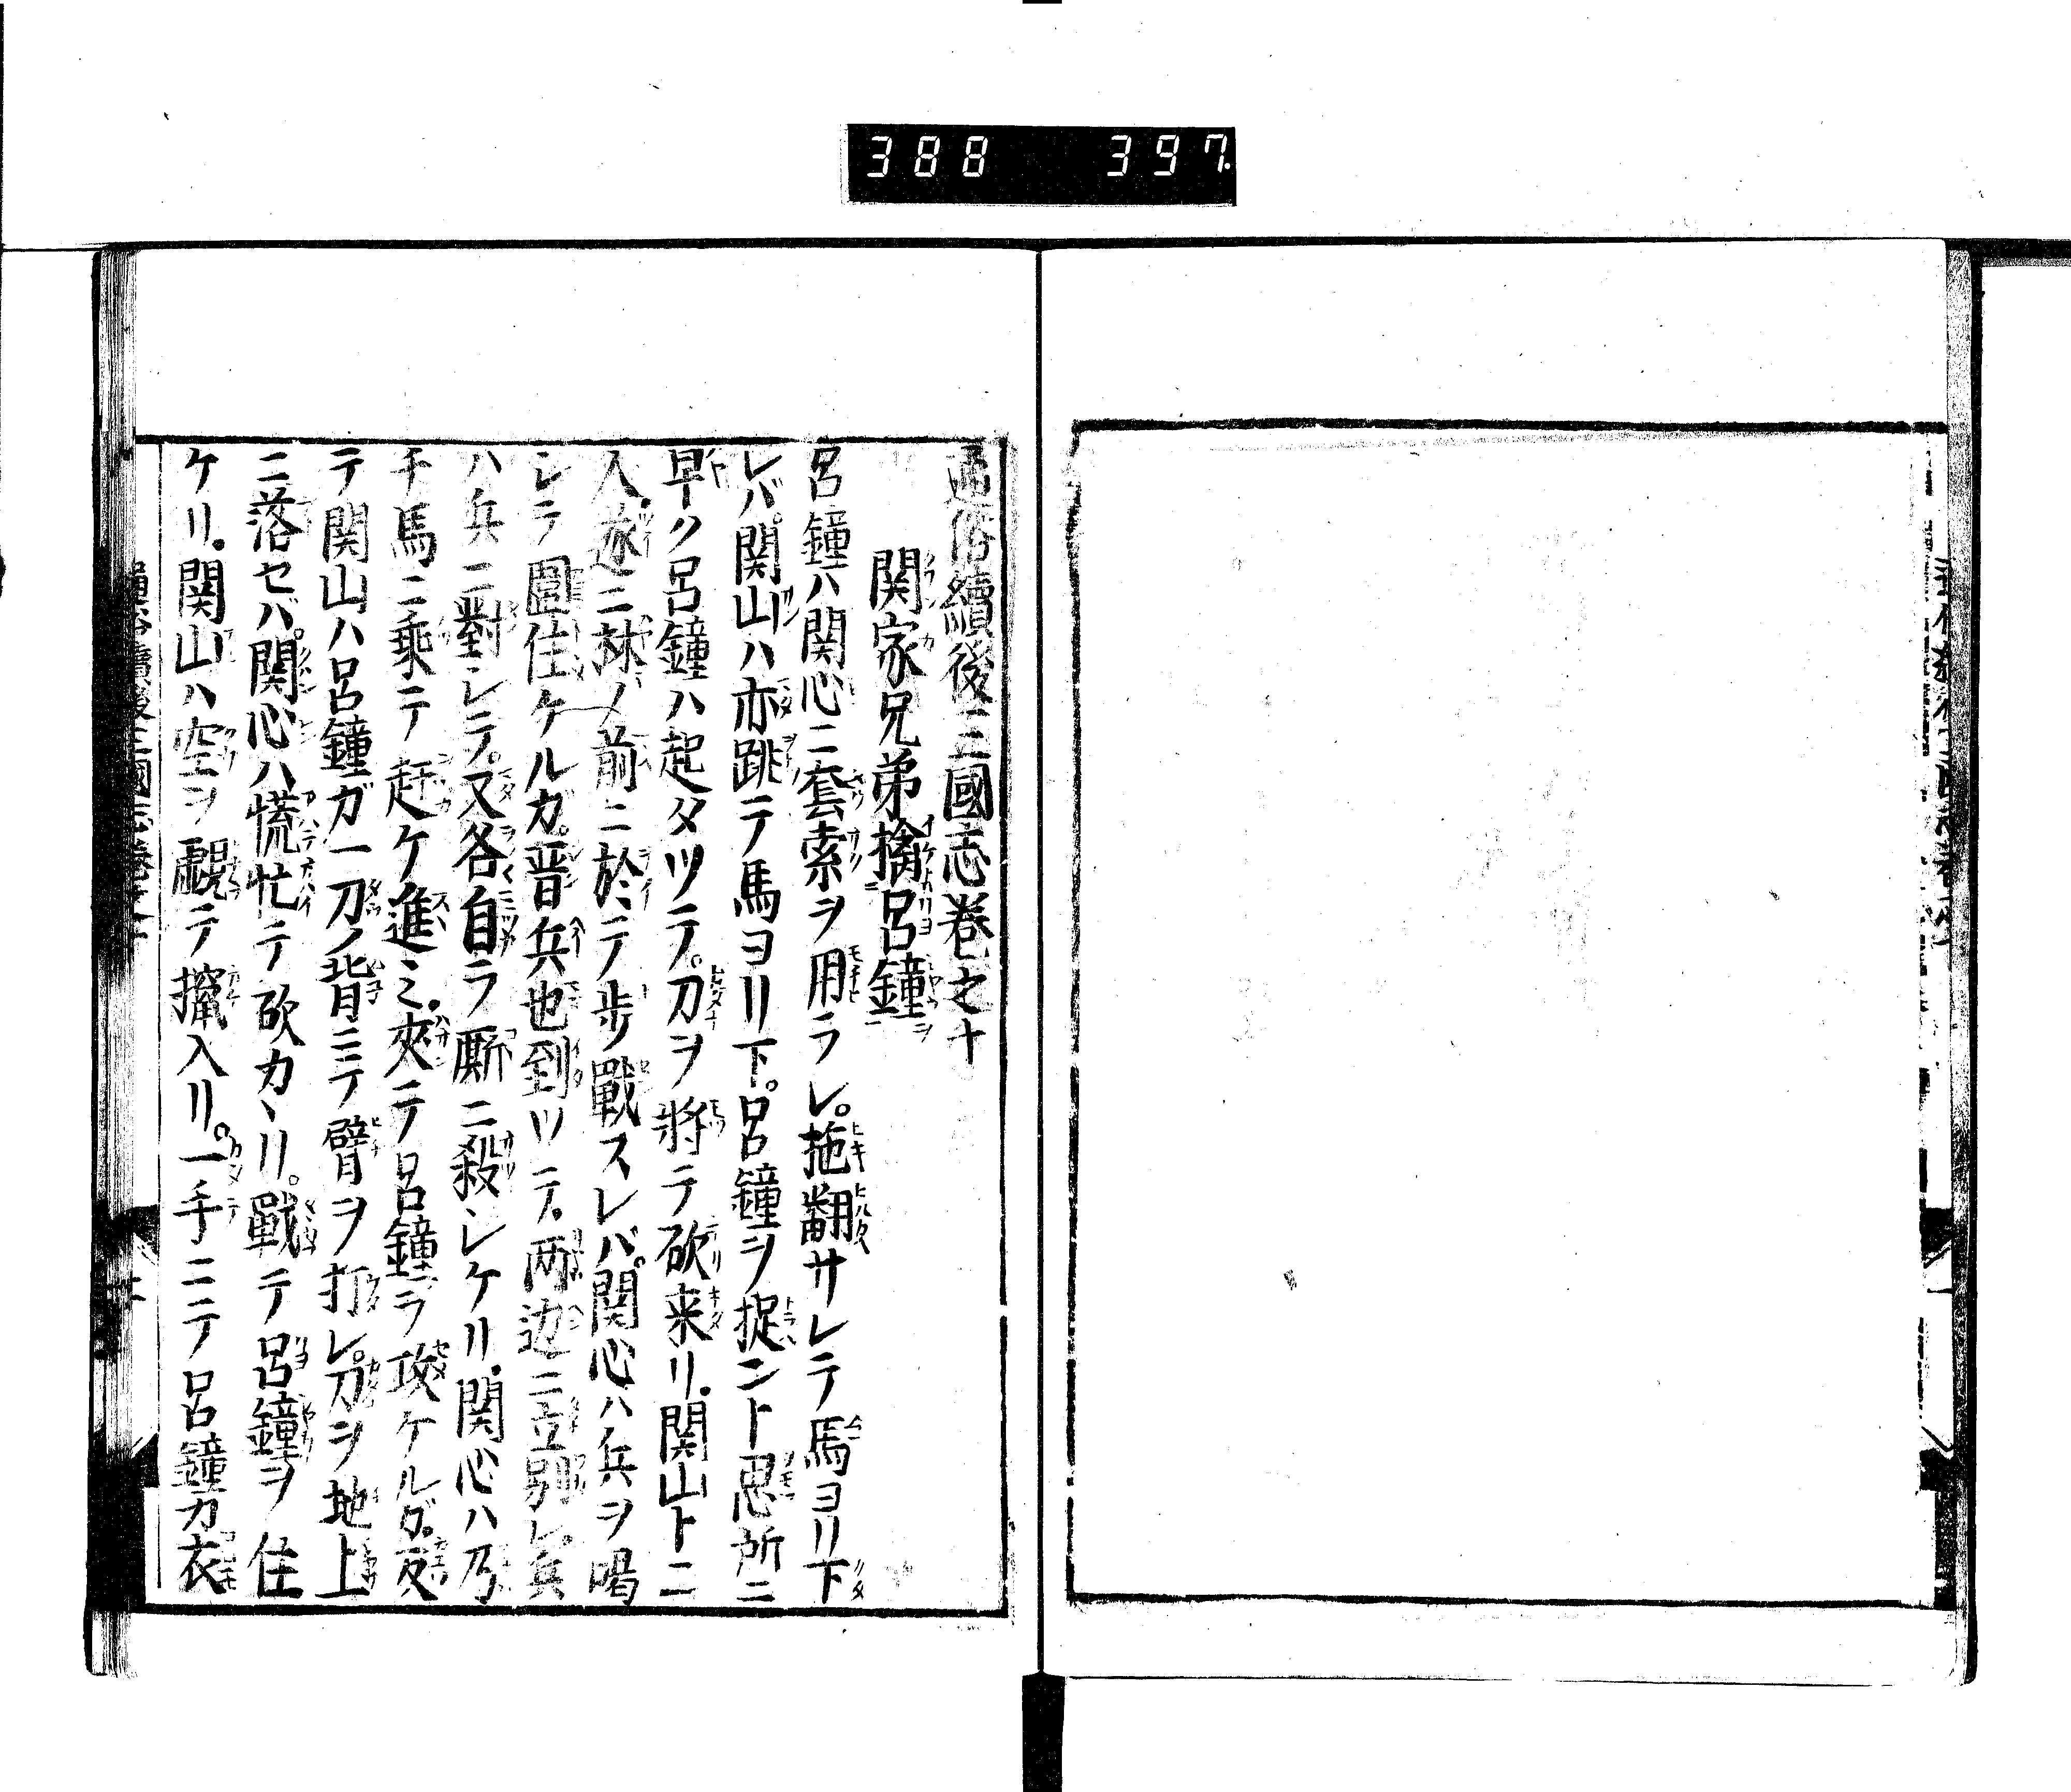 388 397
通俗續後三國志巻之十
関家兄弟擒呂鐘
呂鐘ハ関心ニ套索ヲ用ラレ。拖翻サレテ馬ヨリ下
レバ。関山ハ亦跳テ馬ヨリ下。呂鐘ヲ捉ント思所ニ
早ク呂鐘ハ起タツテ。刀ヲ将テ砍来リ。関山トニ
入。遂ニ林ノ前ニ於テ歩戰スレバ。関心ハ兵ヲ喝
シテ圍住ケルガ。晋兵也到ツテ。両边ニ立別レ。兵
ハ兵ニ對シテ。又各自ラ厮ニ殺シケリ。関心ハ乃
チ馬ニ乗テ赶ケ進ミ。夾テ呂鐘ヲ攻ケルガ。反
テ関山ハ呂鐘ガ一刀ノ背ニテ臂ヲ打レ。刀ヲ地上
ニ落セバ。関心ハ慌忙テ砍カヽリ。戰テ呂鐘ヲ住
ケリ。関山ハ空ヲ覷テ攛入リ。一手ニテ呂鐘カ衣